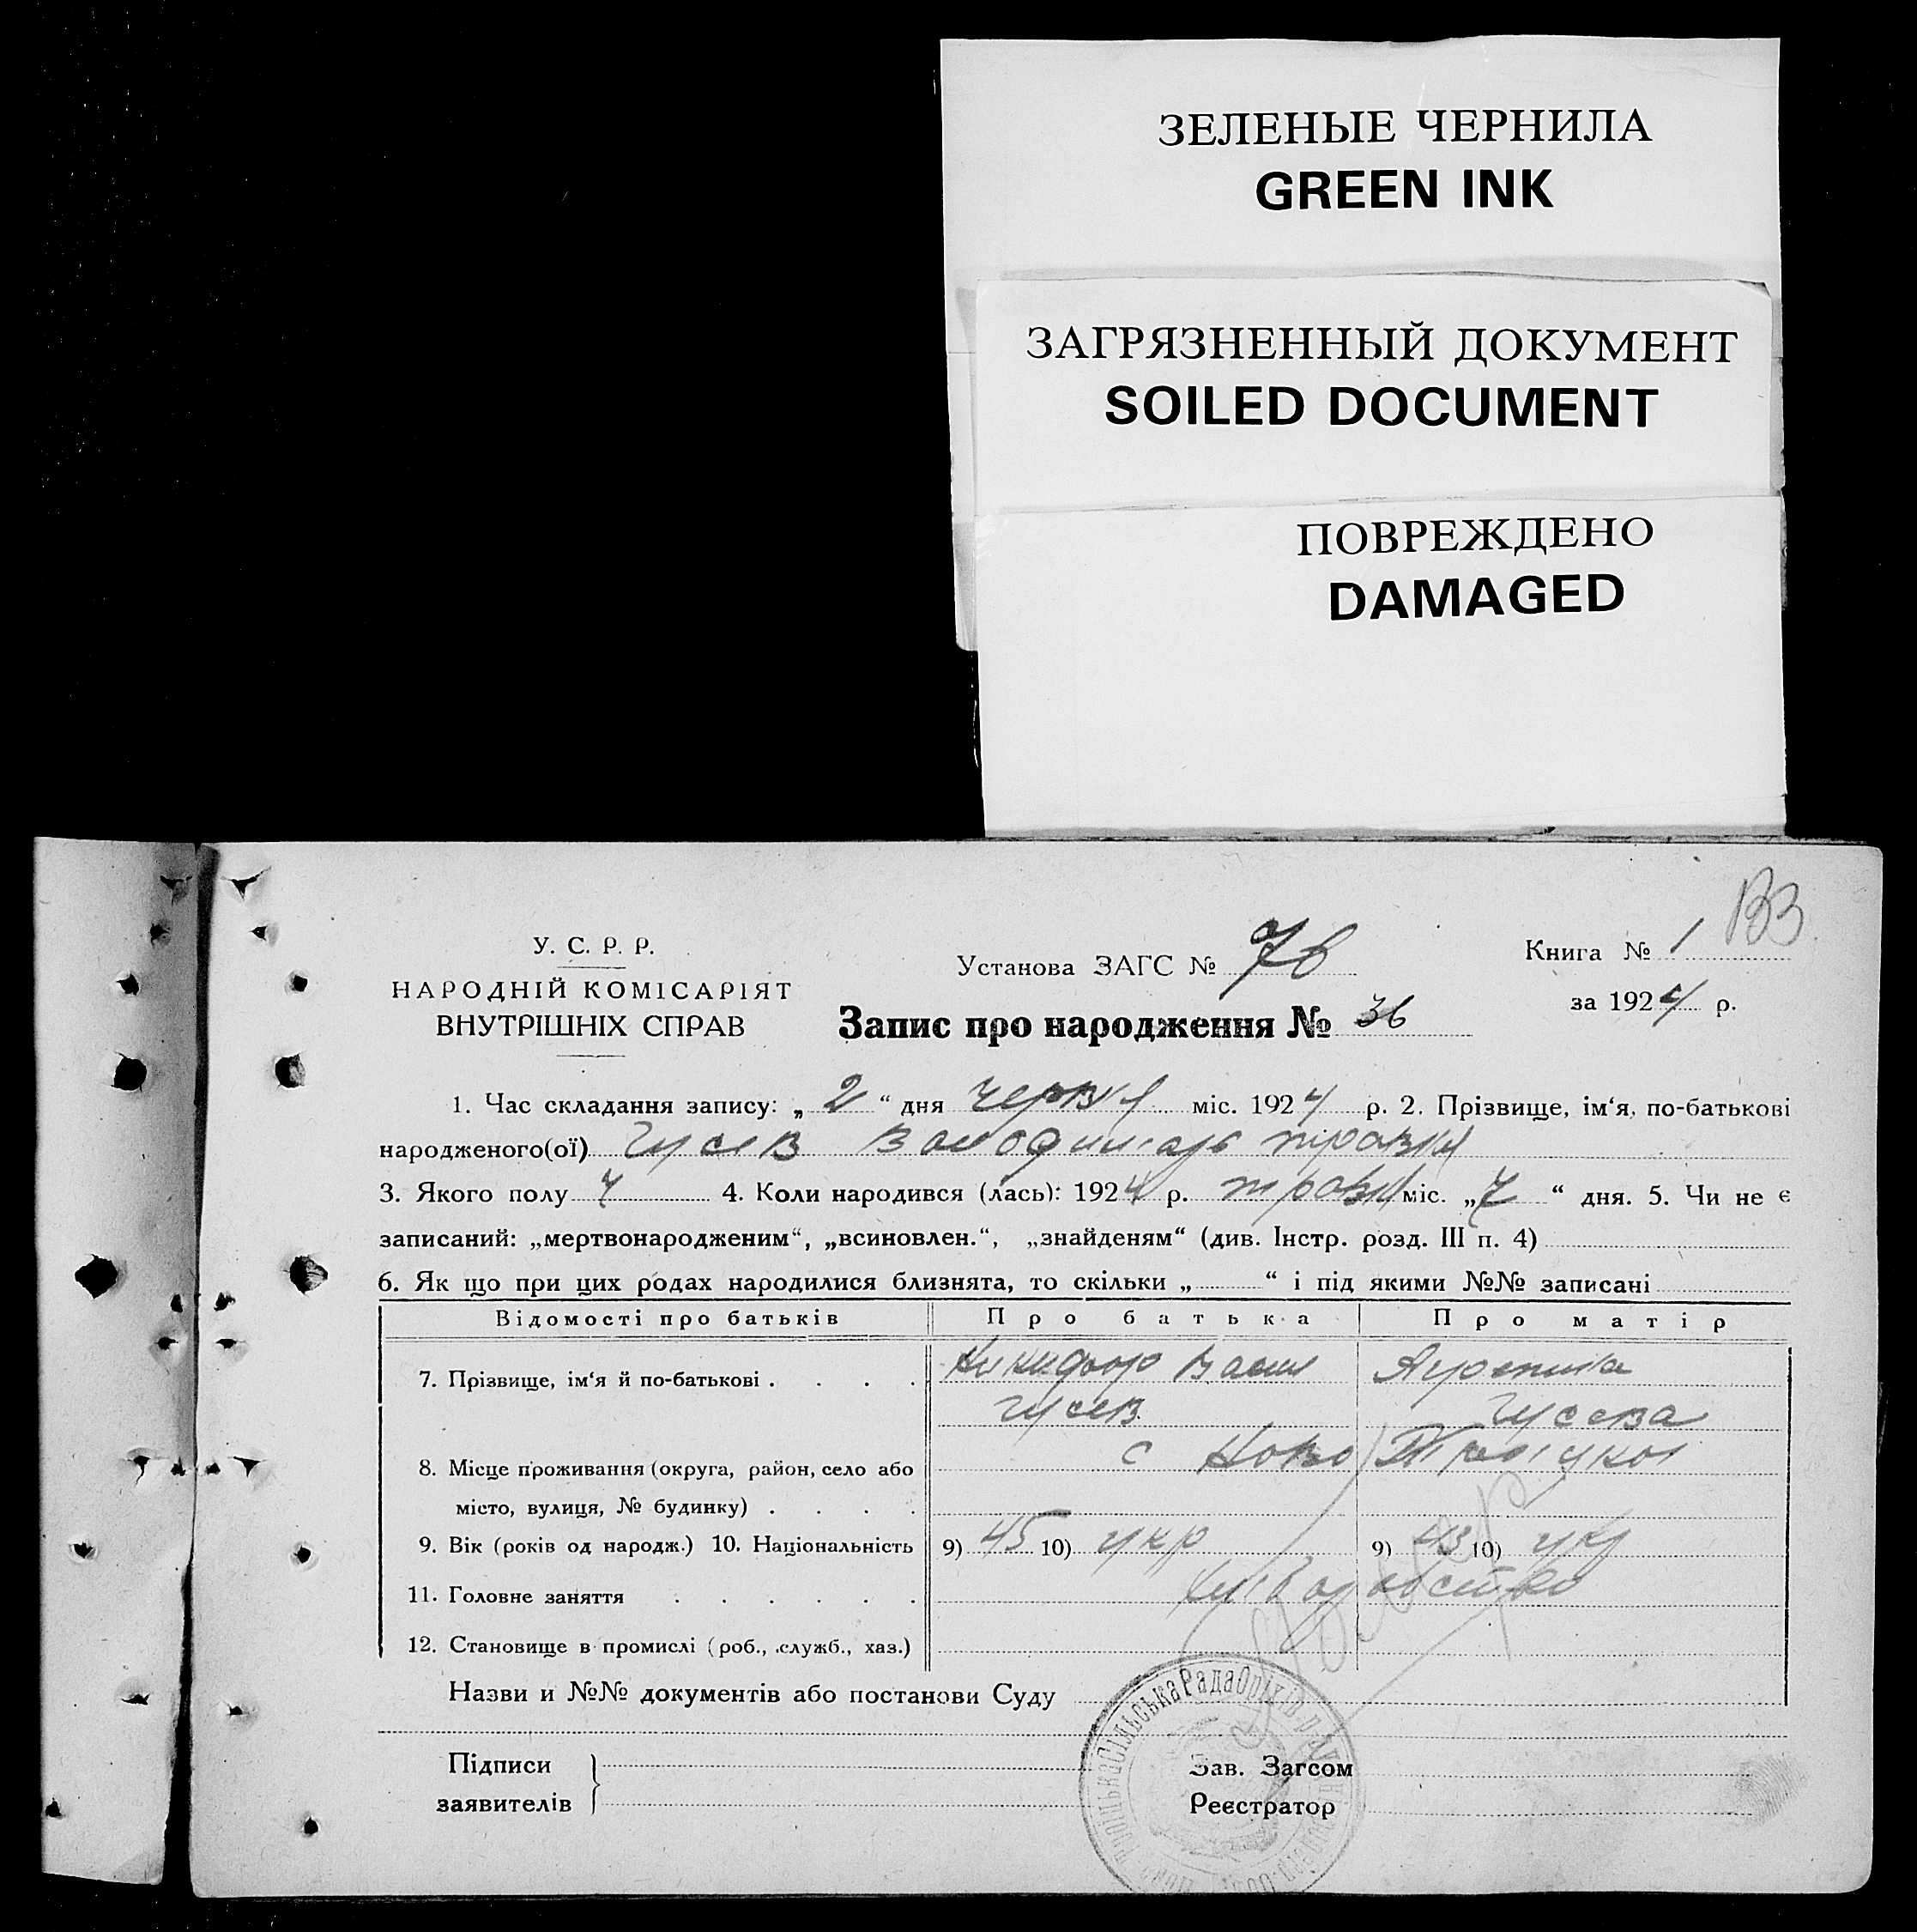 ЗЕЛЕНЫЕ ЧЕРНИЛА
GREEN INK
ЗАГРЯЗНЕННЫЙ ДОКУМЕНТ
SOILED DOCUMENT
ПОВРЕЖДЕНО
DAMAGED
У. С. Р. Р.
НАРОДНІЙ КОМІСАРІЯТ
ВНУТРІШНІХ СПРАВ
Установа ЗАГС № 76
Запис про народження № 36
Книга № 1
за 1924 р.
1. Час складання запису: „ 2 “ дня червня міс. 1924 р. 2. Прізвище, ім‘я, по-батькові
народженого(ої) Гусев
3. Якого полу ч 4. Коли народився (лась): 1924 р. травня міс. „ 7 “ дня. 5. Чи не є
записаний: „мертвонародженим“, „всиновлен.“, „знайденям“ (див. Інстр. розд. III п. 4)
6. Як що при цих родах народилися близнята, то скільки „ “ і під якими №№ записані
Відомості про батьків Про батька Про матір
7. Прізвище, ім‘я й по-батькові . . . . Никифор Васил
Гусев Гусева
8. Місце проживання (округа, район, село або с Ново
місто, вулиця, № будинку) . . . .
9. Вік (років од народж.) 10. Національність 9) 45 10) укр 9) 43 10) укр
11. Головне заняття . . . . . .
12. Становище в промислі (роб., служб., хаз.)
Назви и №№ документів або постанови Суду
Підписи
заявителів
Зав. Загсом
Реєстратор
Сільська Рада Оріхів.